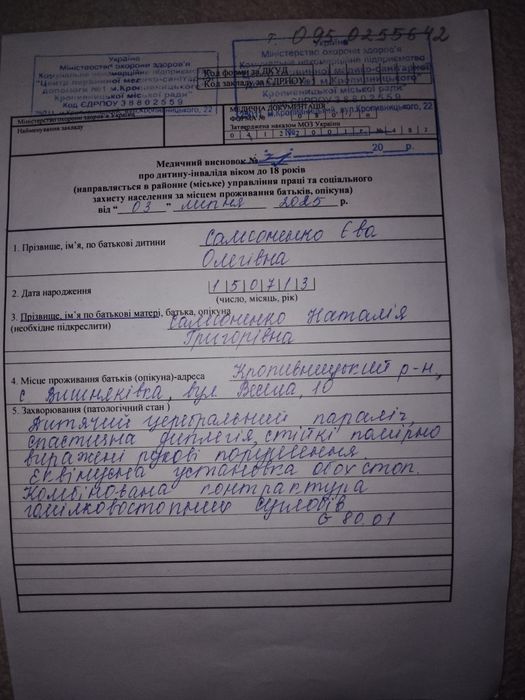 т. 095 0255642
Україна
Міністерство охорони здоров'я
Комунальне некомерційне підприємство
"Центр первинної медико-санітарної
допомоги №1 м.Кропивницького"
Кропивницької міської ради"
Код ЄДРПОУ 38802559
Україна
Міністерство охорони здоров'я
Комунальне некомерційне підприємство
Кропивницької міської ради"
м.Кропивницький, вул.Кропивницького, 22
Код форми за ДКУД
Код закладу за ЄДРПОУ
Міністерство охорони здоров'я України
Найменування закладу
МЕДИЧНА ДОКУМЕНТАЦІЯ
ФОРМА №
Затверджена наказом МОЗ України
0 4 1 2 2 0 0 1 р. № 4 8 2
20 р.
Медичний висновок №
про дитину-інваліда віком до 18 років
(направляється в районне (міське) управління праці та соціального
захисту населення за місцем проживання батьків, опікуна)
від " 03 " липня 2025 р.
1. Прізвище, ім'я, по батькові дитини Самсоненко Єва
Олегівна
2. Дата народження 1 5 0 7 1 3
(число, місяць, рік)
3. Прізвище, ім'я по батькові матері, батька, опікуна
(необхідне підкреслити) Самсоненко Наталія
Григорівна
4. Місце проживання батьків (опікуна)-адреса Кропивницький р-н,
с. вул. Весела, 10
5. Захворювання (патологічний стан )
Дитячий церебральний параліч,
спастична диплегія, стійкі помірно
виражені рухові порушення.
Еквінусна установка обох стоп.
Комбінована контрактура
гомілковостопних суглобів
G 80.01